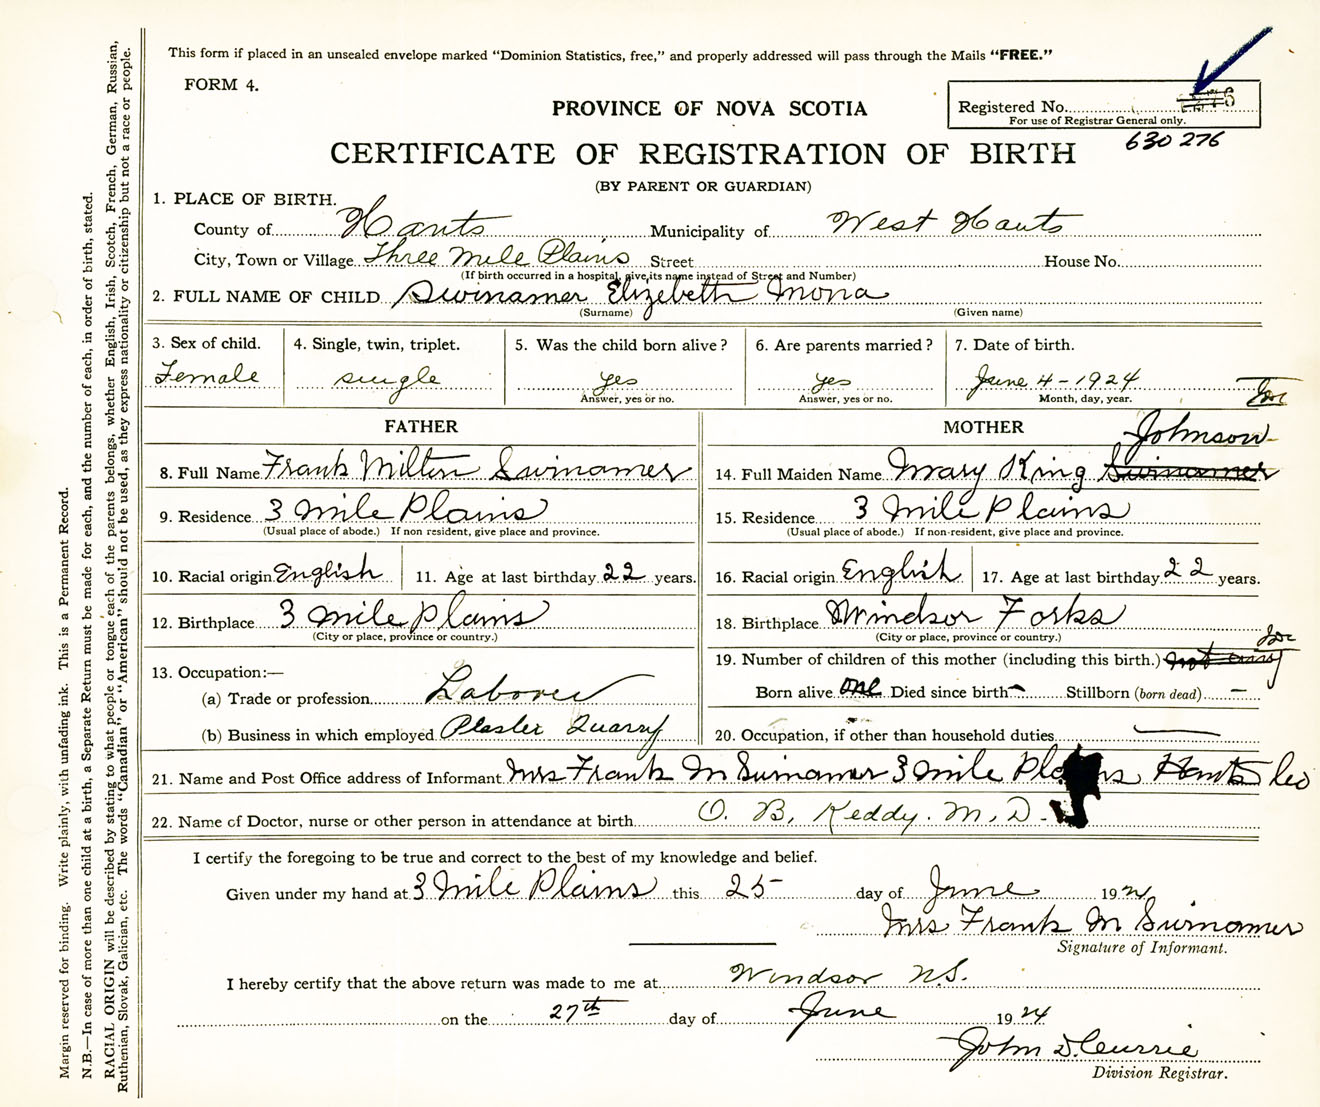 This form if placed in an unsealed envelope marked "Dominion Statistics, free," and properly addressed will pass through the Mails "FREE."
FORM 4.
PROVINCE OF NOVA SCOTIA
Registered No.
For use of Registrar General only.
630 276
CERTIFICATE OF REGISTRATION OF BIRTH
(BY PARENT OR GUARDIAN)
1. PLACE OF BIRTH.
County of Hants Municipality of West Hants
City, Town or Village Three Mile Plains Street House No.
(If birth occurred in a hospital, give its name instead of Street and Number)
2. FULL NAME OF CHILD Swinamer Elizebeth Mona
(Surname) (Given name)
3. Sex of child. 4. Single, twin, triplet. 5. Was the child born alive? 6. Are parents married? 7. Date of birth.
Female single yes yes June 4-1924
Answer, yes or no. Answer, yes or no. Month, day, year.
FATHER MOTHER
Johnson
8. Full Name Frank Milton Swinamer 14. Full Maiden Name Mary King Swinamer
9. Residence 3 Mile Plains 15. Residence 3 Mile Plains
(Usual place of abode.) If non resident, give place and province. (Usual place of abode.) If non-resident, give place and province.
10. Racial origin English 11. Age at last birthday 22 years. 16. Racial origin English 17. Age at last birthday 22 years.
12. Birthplace 3 Mile Plains 18. Birthplace Windsor Forks
(City or place, province or country.) (City or place, province or country.)
13. Occupation:— 19. Number of children of this mother (including this birth.)
(a) Trade or profession Laborer Born alive one Died since birth — Stillborn (born dead) —
(b) Business in which employed Plaster Quarry 20. Occupation, if other than household duties —
21. Name and Post Office address of Informant Mrs Frank M Swinamer 3 Mile Plains Hants Co
22. Name of Doctor, nurse or other person in attendance at birth O. B. Keddy. M. D.
I certify the foregoing to be true and correct to the best of my knowledge and belief.
Given under my hand at 3 Mile Plains this 25 day of June 1924
Mrs Frank M Swinamer
Signature of Informant.
I hereby certify that the above return was made to me at Windsor N.S.
on the 27th day of June 1924
John D. Currie
Division Registrar.
Margin reserved for binding. Write plainly, with unfading ink. This is a Permanent Record.
N.B.—In case of more than one child at a birth, a Separate Return must be made for each, and the number of each, in order of birth, stated.
RACIAL ORIGIN will be described by stating to what people or tongue each of the parents belongs, whether English, Irish, Scotch, French, German, Russian,
Ruthenian, Slovak, Galician, etc. The words "Canadian" or "American" should not be used, as they express nationality or citizenship but not a race or people.